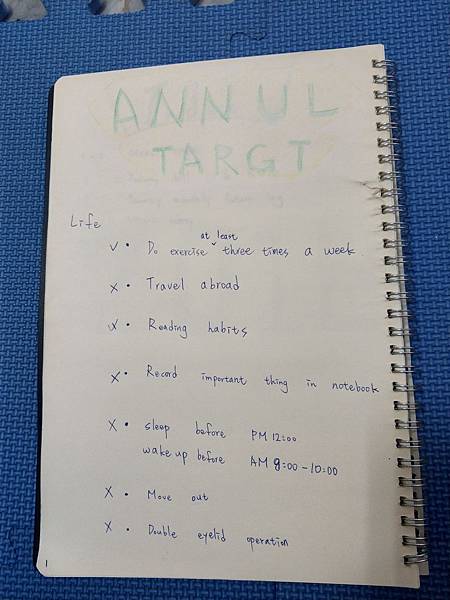 ANNUL
TARGT
Life
at least
✓ • Do exercise ˇ three times a week
x • Travel abroad
x • Reading habits
x • Record important thing in notebook
x • sleep before PM 12:00
wake up before AM 9:00-10:00
x • Move out
x • Double eyelid operation
1